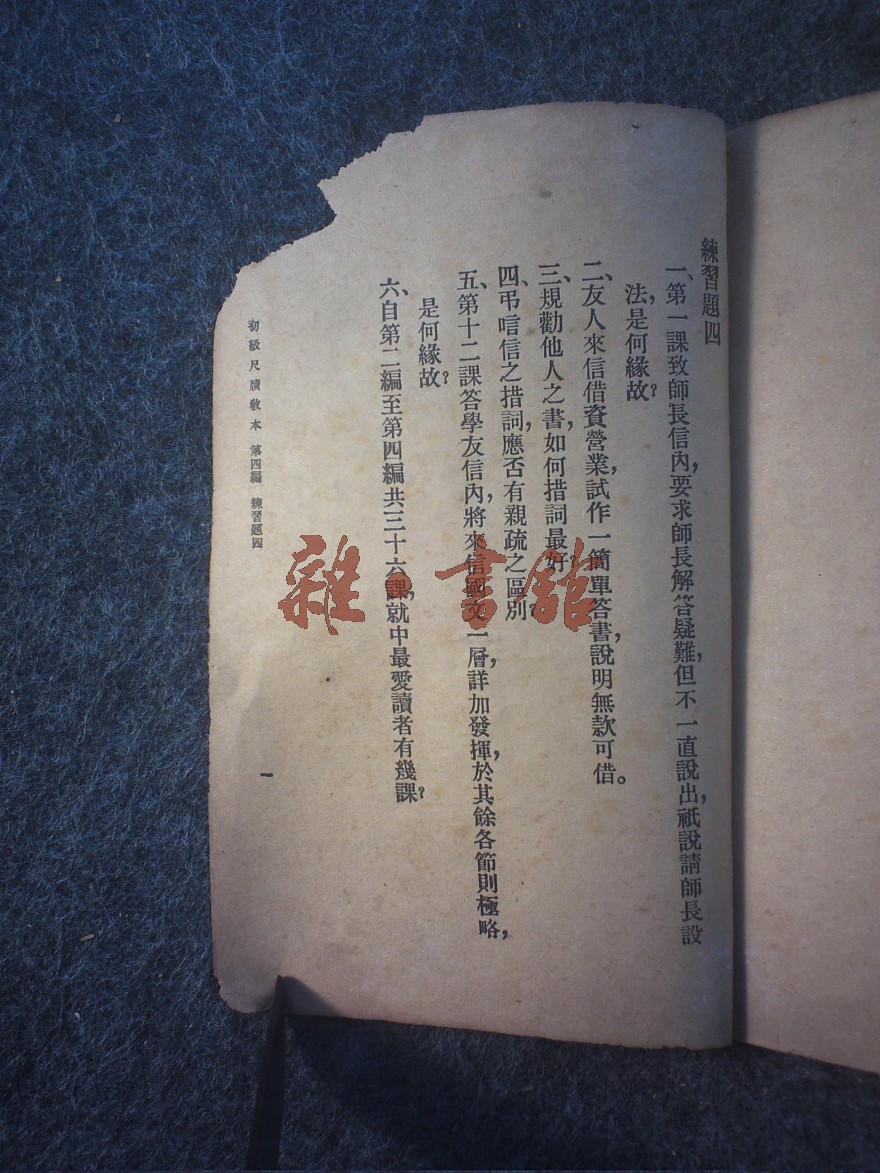 練習題四
一、第一課致師長信內，要求師長解答疑難，但不一直說出，祇說請師長設
法，是何緣故？
二、友人來信借資營業，試作一簡單答書，說明無款可借。
三、規勸他人之書，如何措詞最好？
四、弔唁信之措詞，應否有親疏之區別？
五、第十二課答學友信內，將來信國文一層，詳加發揮，於其餘各節則極略，
是何緣故？
六、自第二編至第四編共三十六課，就中最愛讀者有幾課？
初級尺牘教本 第四編 練習題四
一
雜·書館